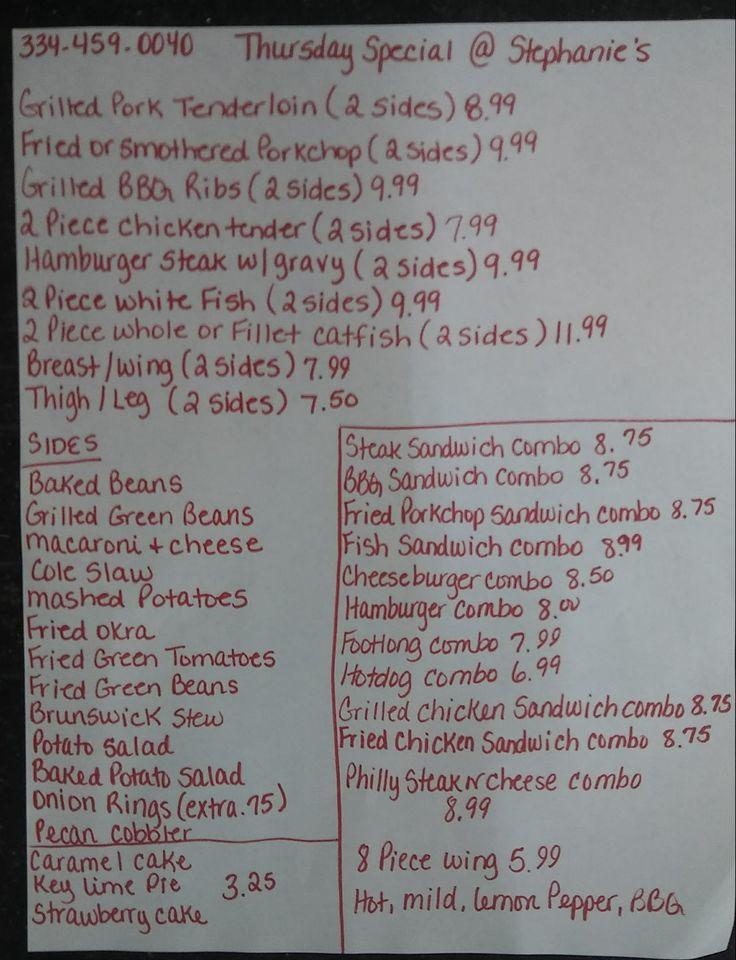 334-459-0040 Thursday Special @ Stephanie's
Grilled Pork Tenderloin (2 sides) 8.99
Fried or smothered Porkchop (2 sides) 9.99
Grilled BBQ Ribs (2 sides) 9.99
2 Piece chicken tender (2 sides) 7.99
Hamburger Steak w/gravy (2 sides) 9.99
2 Piece white Fish (2 sides) 9.99
2 Piece whole or Fillet catfish (2 sides) 11.99
Breast/wing (2 sides) 7.99
Thigh/Leg (2 sides) 7.50
SIDES
Baked Beans
Grilled Green Beans
macaroni + cheese
Cole Slaw
mashed Potatoes
Fried okra
Fried Green Tomatoes
Fried Green Beans
Brunswick Stew
Potato salad
Baked Potato Salad
Onion Rings (extra .75)
Pecan cobbler
Caramel cake
Key lime Pie 3.25
Strawberry cake
Steak Sandwich Combo 8.75
BBQ Sandwich combo 8.75
Fried Porkchop Sandwich combo 8.75
Fish Sandwich combo 8.99
Cheeseburger combo 8.50
Hamburger Combo 8.00
Footlong combo 7.99
Hotdog combo 6.99
Grilled chicken Sandwich combo 8.75
Fried Chicken Sandwich combo 8.75
Philly Steak N cheese combo
8.99
8 Piece wing 5.99
Hot, mild, Lemon Pepper, BBQ